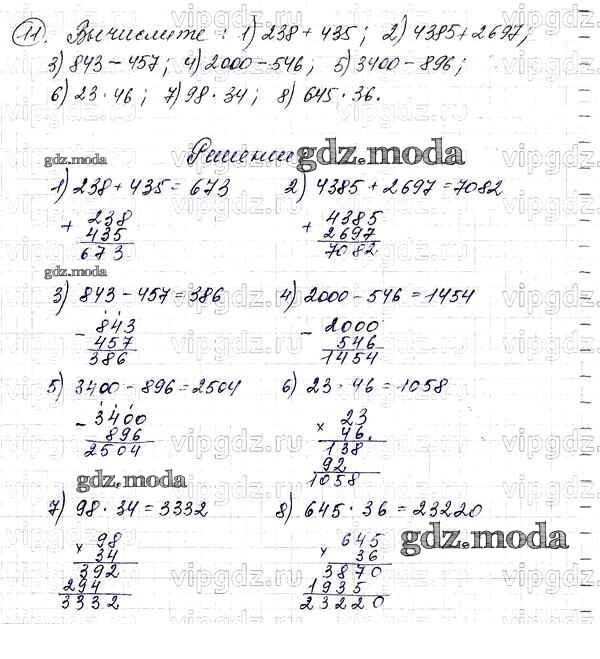 11. Вычислите: 1) 238 + 435; 2) 4385 + 2697;
3) 843 - 457; 4) 2000 - 546; 5) 3400 - 896;
6) 23 · 46; 7) 98 · 34; 8) 645 · 36.
gdz.moda
Решение
gdz.moda
1) 238 + 435 = 673
+ 238
435
673
gdz.moda
2) 4385 + 2697 = 7082
+ 4385
2697
7082
3) 843 - 457 = 386
- 843
457
386
4) 2000 - 546 = 1454
- 2000
546
1454
5) 3400 - 896 = 2504
- 3400
896
2504
gdz.moda
6) 23 · 46 = 1058
× 23
46
138
92
1058
7) 98 · 34 = 3332
× 98
34
392
294
3332
8) 645 · 36 = 23220
gdz.moda
× 645
36
3870
1935
23220
vipgdz.ru